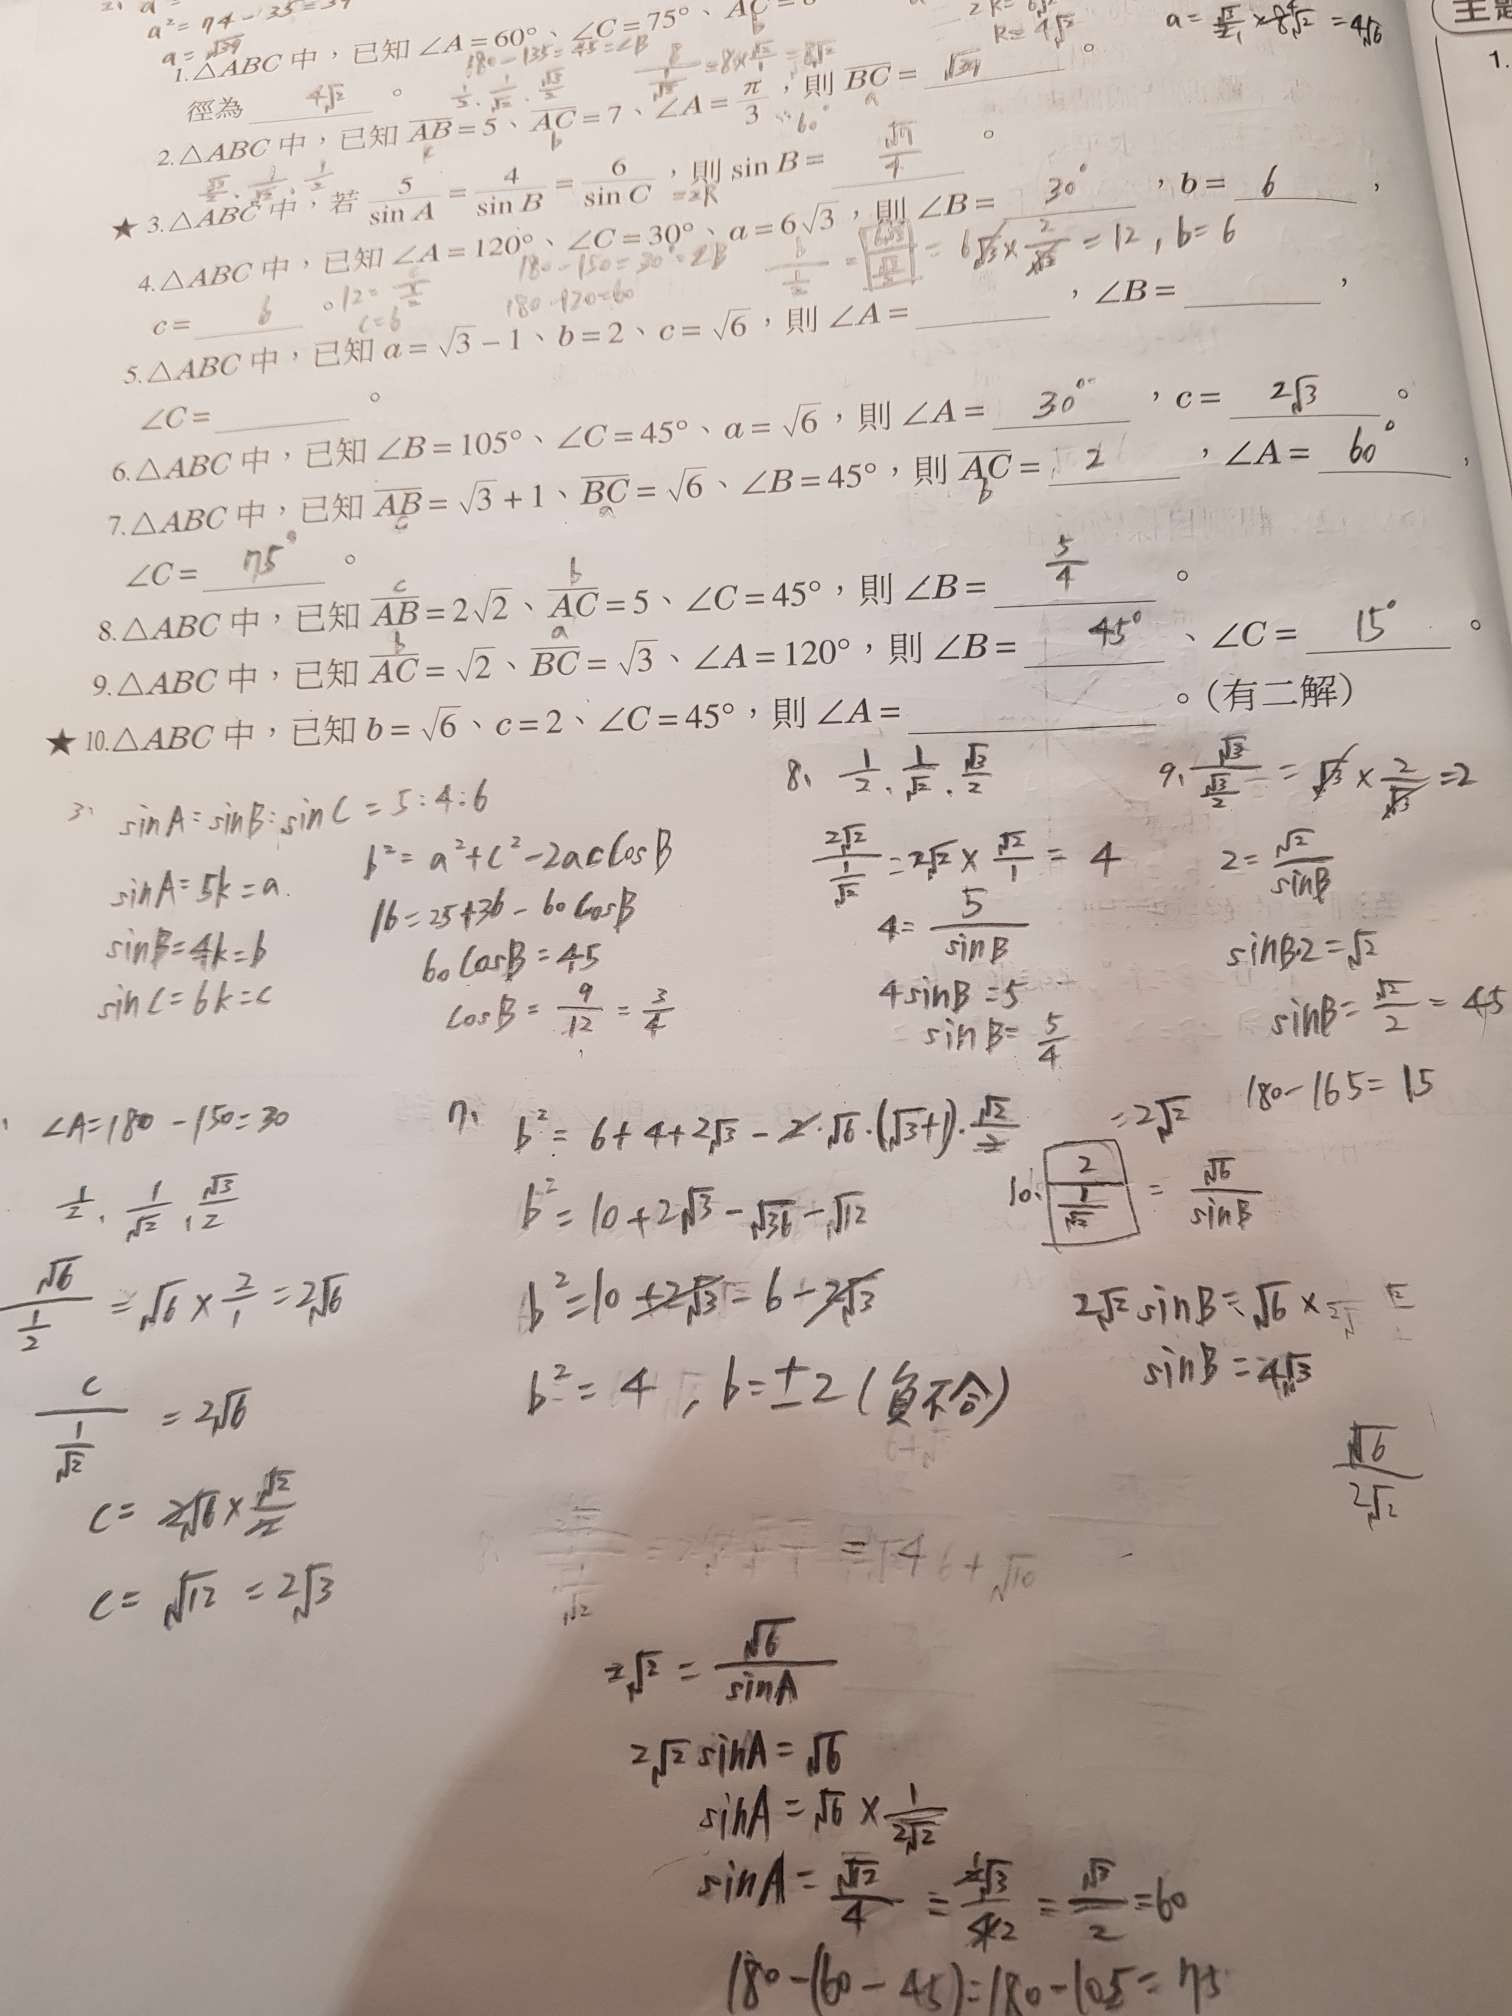 a² = 74 - 35 = 39
a = √39
2R = 8√2
R = 4√2
a = √3/2 × 8√2 = 4√6
1.
1.△ABC 中，已知 ∠A=60°、∠C=75°、AC=8
b
180-135=45=∠B
徑為 4√2 。
1/2、1/√2、√3/2
8/(1/√2) = 8×√2/1 = 8√2
2.△ABC 中，已知 AB=5、AC=7、∠A=π/3，則 BC= √39 。
c b 60° a
√3/2、1/√2、1/2
★ 3.△ABC 中，若 5/sin A = 4/sin B = 6/sin C，則 sin B= √7/4 。
=2R
4.△ABC 中，已知 ∠A=120°、∠C=30°、a=6√3，則 ∠B= 30°，b= 6，
180-150=30°=∠B
b/(1/2) = 6√3/(√3/2) = 6√3×2/√3 = 12, b=6
c= 6 。
12 = c/(1/2)
c=6
180-120=60
5.△ABC 中，已知 a=√3-1、b=2、c=√6，則 ∠A=，∠B=，
∠C= 。
6.△ABC 中，已知 ∠B=105°、∠C=45°、a=√6，則 ∠A= 30°，c= 2√3 。
7.△ABC 中，已知 AB=√3+1、BC=√6、∠B=45°，則 AC= 2，∠A= 60°，
c a b
∠C= 75° 。
c b
8.△ABC 中，已知 AB=2√2、AC=5、∠C=45°，則 ∠B= 5/4 。
b a
9.△ABC 中，已知 AC=√2、BC=√3、∠A=120°，則 ∠B= 45°、∠C= 15° 。
★ 10.△ABC 中，已知 b=√6、c=2、∠C=45°，則 ∠A= 。(有二解)
3、 sinA=sinB:sinC = 5:4:6
sinA=5k=a
sinB=4k=b
sinC=6k=c
b² = a²+c²-2ac cosB
16=25+36-60cosB
60cosB=45
cosB = 9/12 = 3/4
8、 1/2、1/√2、√3/2
2√2/(1/√2) = 2√2 × √2/1 = 4
4 = 5/sinB
4sinB=5
sinB= 5/4
9、 √3/(√3/2) = √3 × 2/√3 = 2
2= √2/sinB
sinB·2=√2
sinB= √2/2 = 45
180-165=15
∠A=180-150=30
1/2、1/√2、√3/2
√6/(1/2) = √6 × 2/1 = 2√6
c/(1/√2) = 2√6
c= 2√6 × √2/2
c= √12 = 2√3
7、 b² = 6+4+2√3 - 2·√6·(√3+1)·√2/2
b² = 10+2√3-√36-√12
b² = 10+2√3-6-2√3
b² = 4, b=±2 (負不合)
=2√2
10、 2/(1/√2) = √6/sinB
2√2 sinB = √6 ×
sinB = 4√3
√6/2√2
2√2 = √6/sinA
2√2 sinA = √6
sinA = √6 × 1/2√2
sinA = √12/4 = 2√3/42 = √3/2 = 60
180-(60-45)=180-105=75